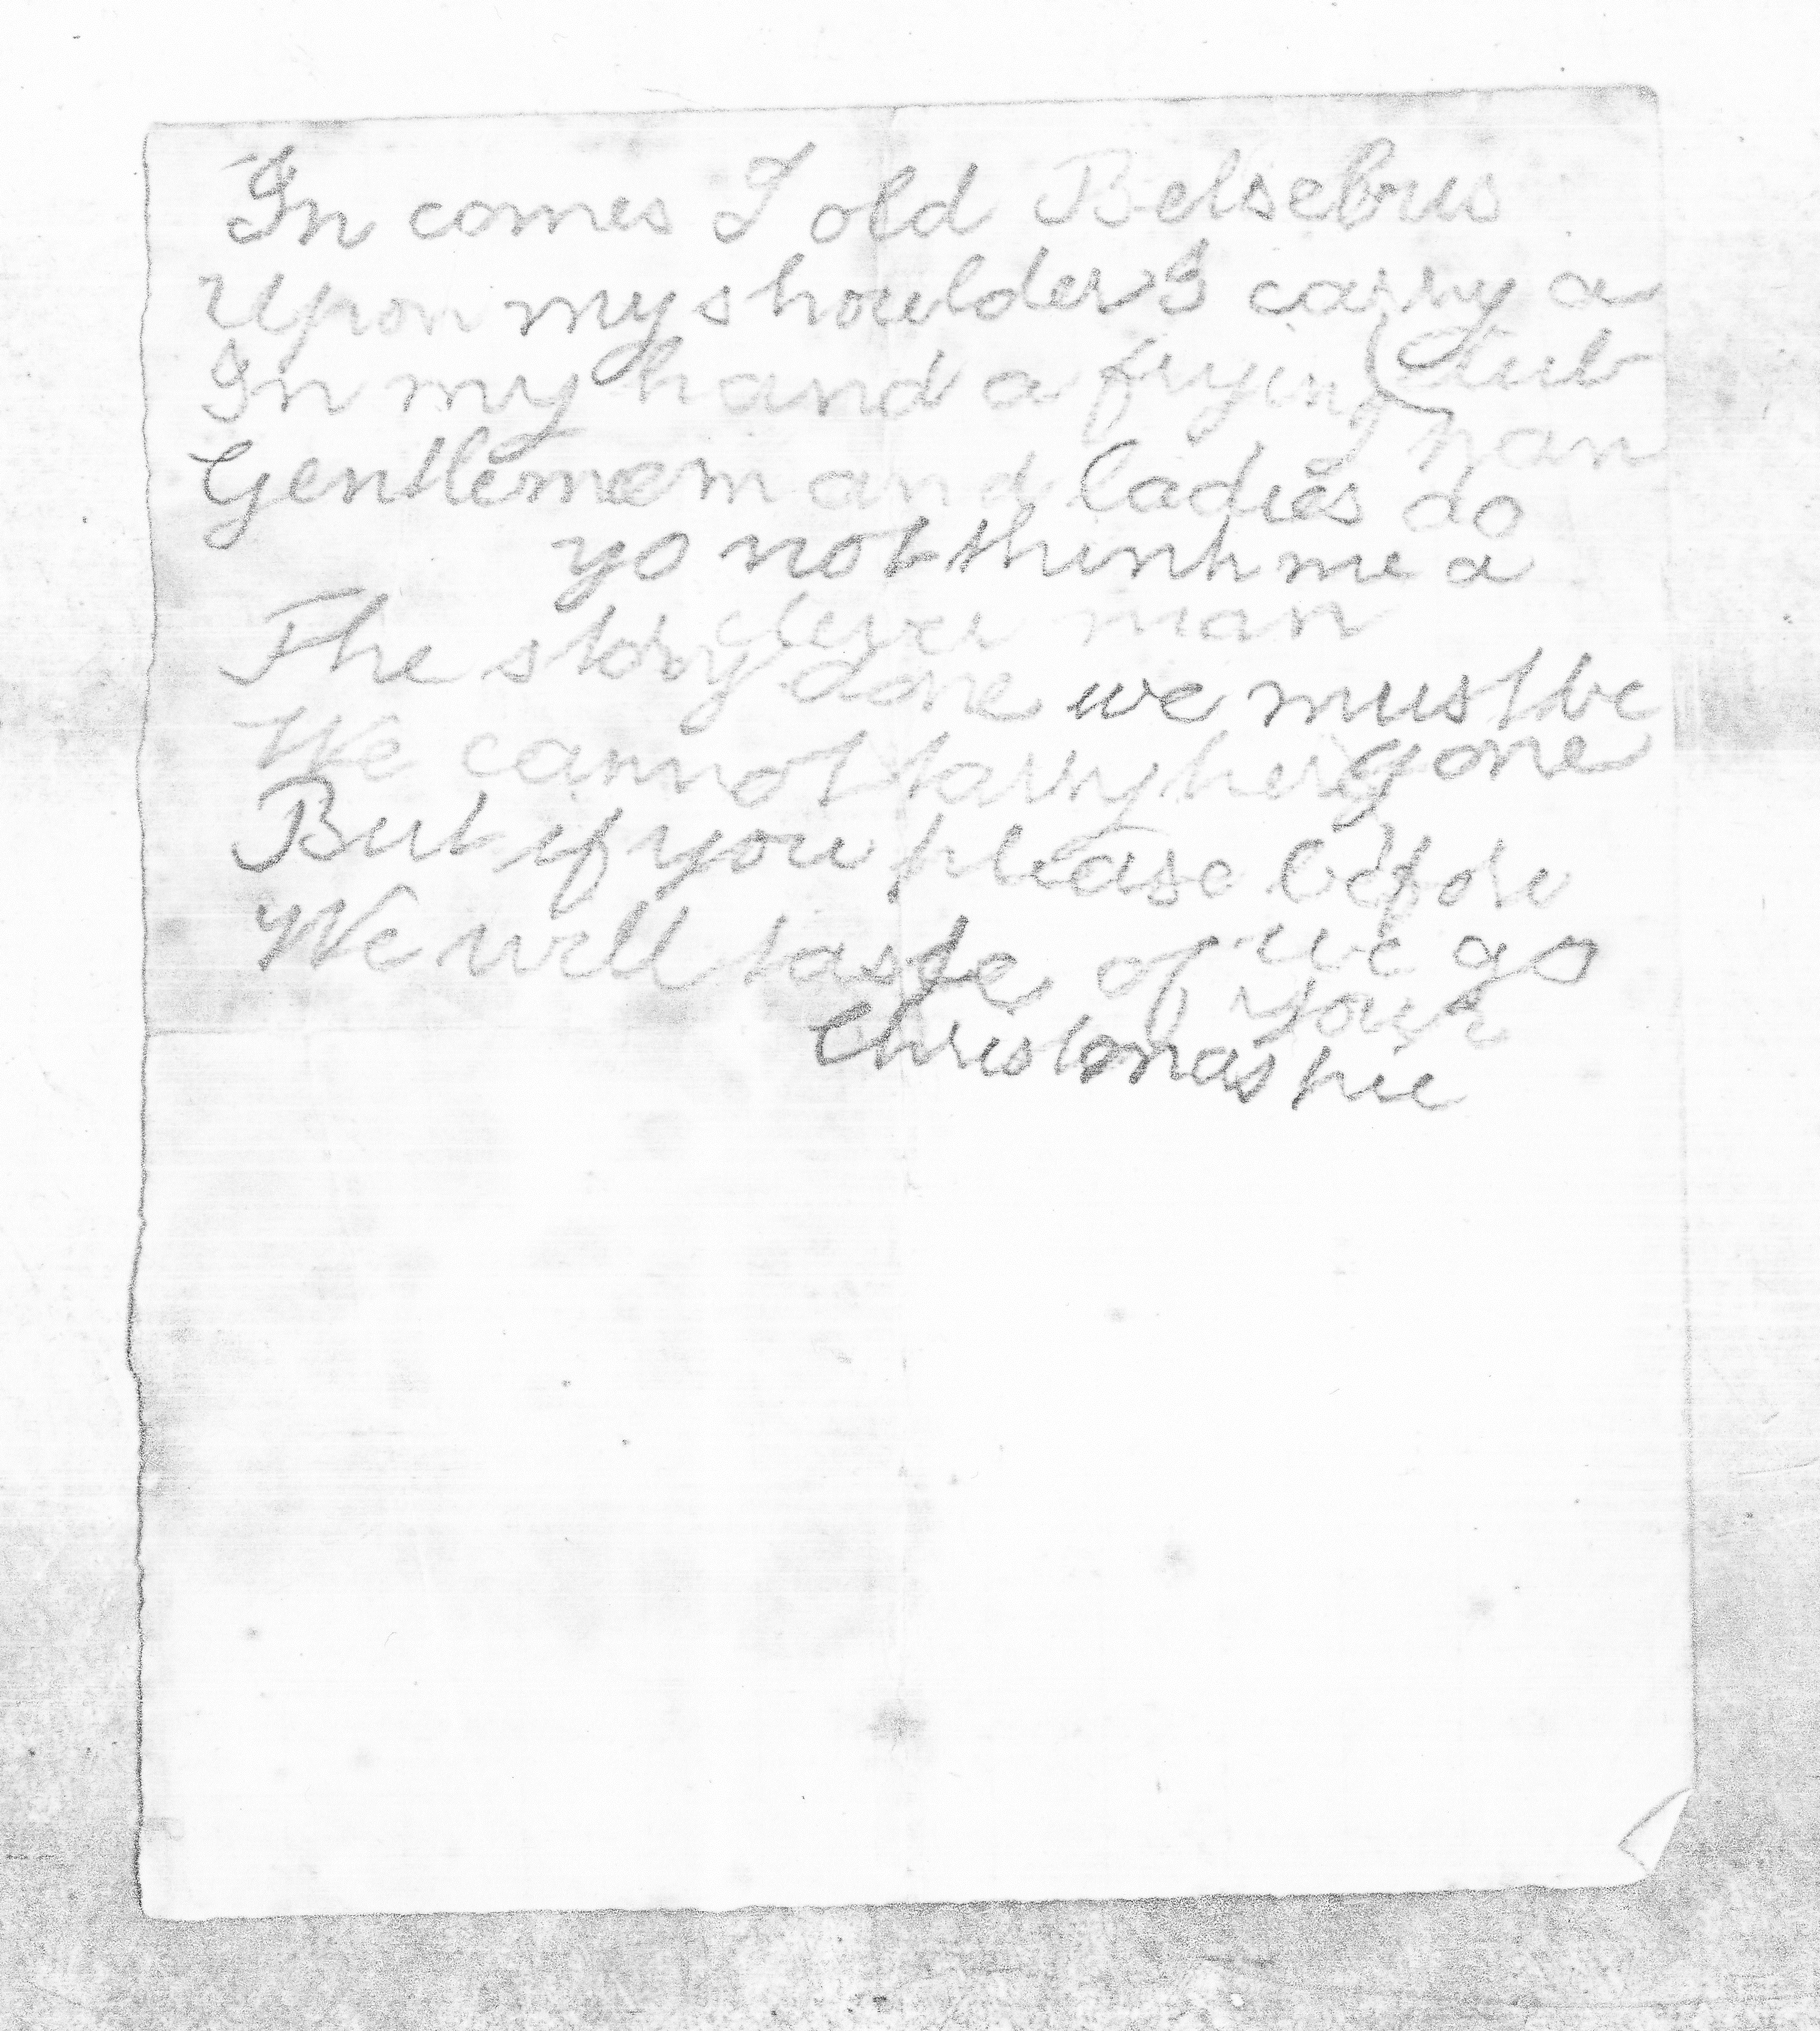 In comes I old Belsebus
Upon my shoulder I carry a
(club
In my hand a frying
pan
Gentlemem and ladies do
yo not think me a
clever man
The story done we must be
gone
We cannot tarry here
But if you please before
we go
We will taste of your
Christmas pie